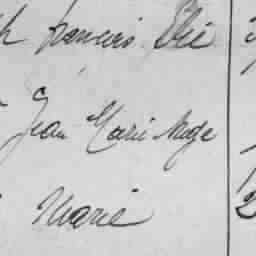 francois Elie
Jean Marie
Marie
2